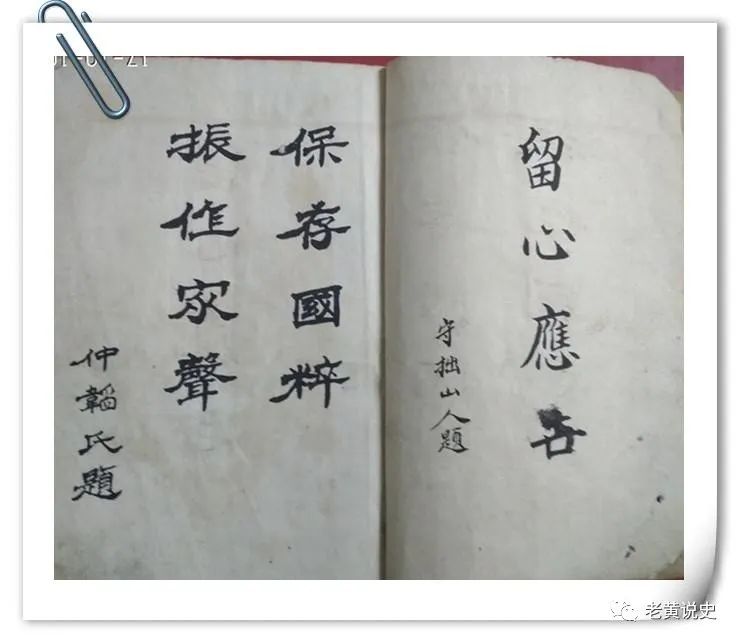 留心應
守拙山人題
保存國粹
振作家聲
仲韜氏題
老黄说史